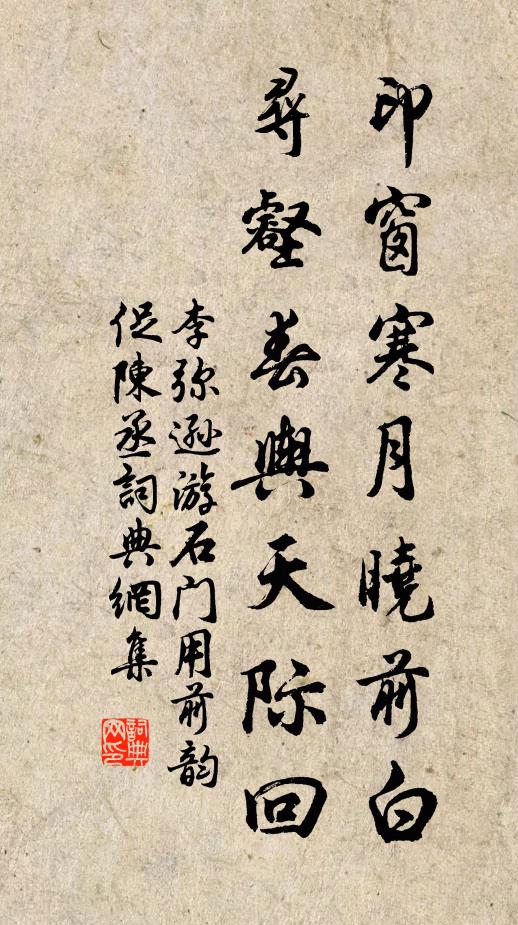 印窗寒月曉前白
尋壑春輿天際回
李弥遜游石门用前韵
促陳丞詞典網集
詞典網印